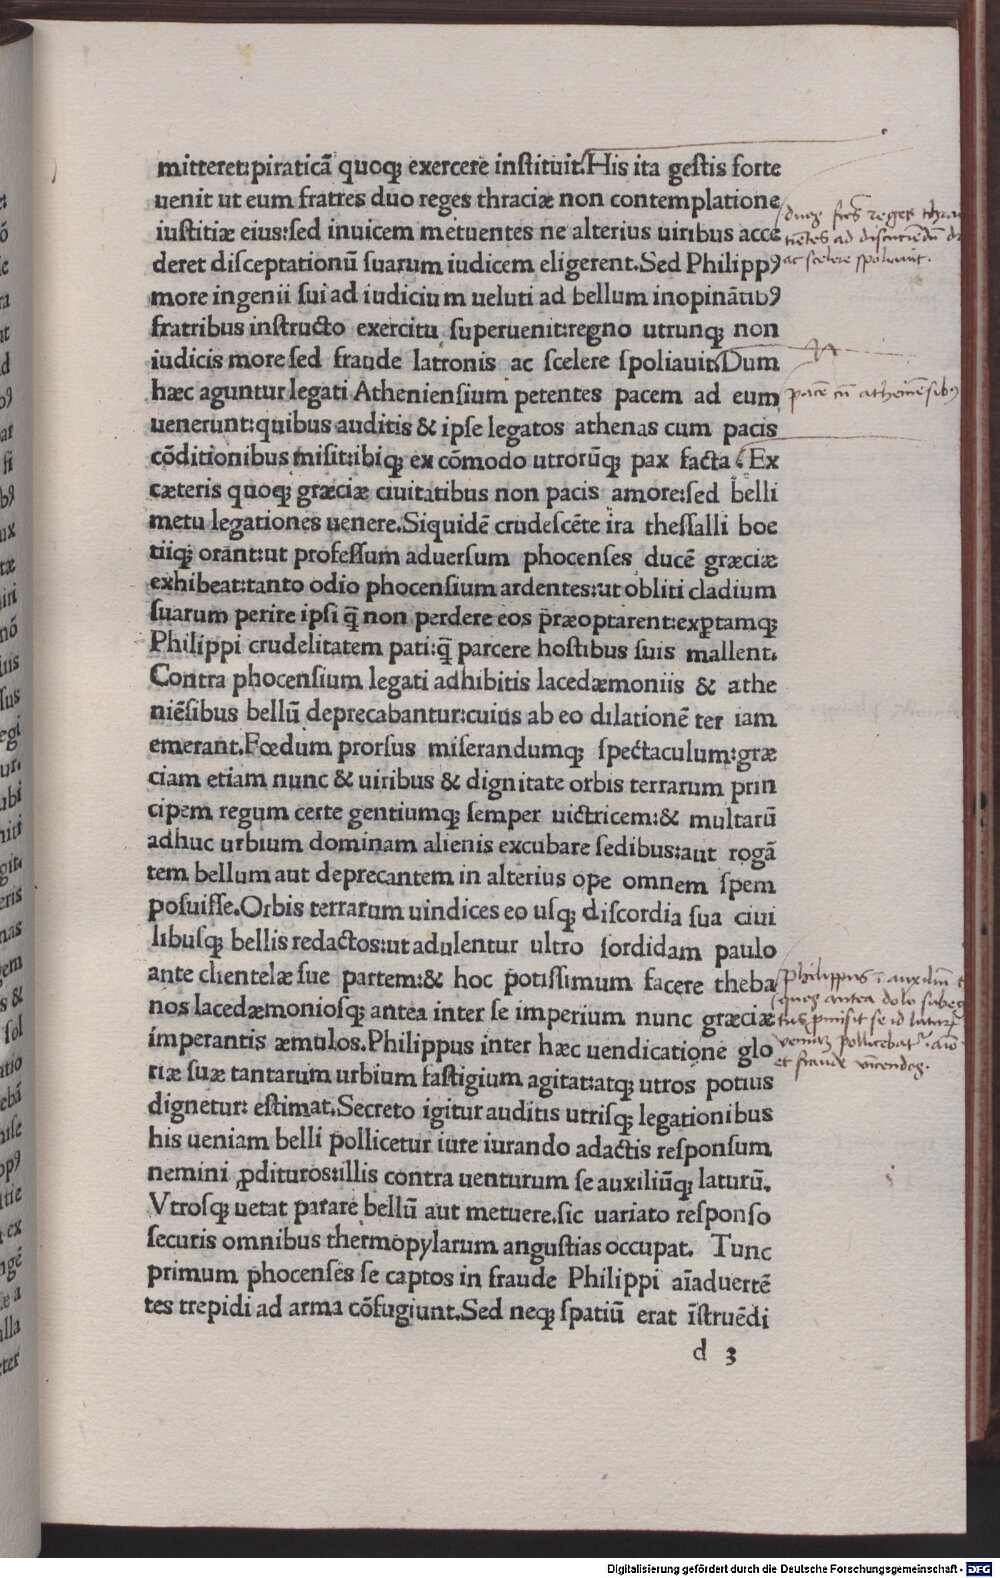 mitteret:piraticã quoqꝫ exercere inſtituit.His ita geſtis forte
uenit ut eum fratres duo reges thraciæ non contemplatione
iuſtitiæ eius:ſed inuicem metuentes ne alterius uiribus acce
deret diſceptationũ ſuarum iudicem eligerent.Sed Philippꝰ
more ingenii ſui ad iudicium ueluti ad bellum inopinãtibꝰ
fratribus inſtructo exercitu ſuperuenit:regno utrunqꝫ non
iudicis more ſed fraude latronis ac ſcelere ſpoliauit.Dum
hæc aguntur legati Athenienſium petentes pacem ad eum
uenerunt:quibus auditis & ipſe legatos athenas cum pacis
cõditionibus miſit:ibiqꝫ ex cõmodo utrorũqꝫ pax facta.Ex
cæteris quoqꝫ græciæ ciuitatibus non pacis amore:ſed belli
metu legationes uenere.Siquidẽ crudeſcẽte ira theſſalli boe
tiiqꝫ orãnt:ut profeſſum aduerſum phocenſes ducẽ græciæ
exhibeat:tanto odio phocenſium ardentes:ut obliti cladium
ſuarum perire ipſi q̃ non perdere eos præoptarent:exꝑtamqꝫ
Philippi crudelitatem pati:q̃ parcere hoſtibus ſuis mallent.
Contra phocenſium legati adhibitis lacedæmoniis & athe
niẽſibus bellũ deprecabantur:cuius ab eo dilationẽ ter iam
emerant.Fœdum prorſus miſerandumqꝫ ſpectaculum:græ
ciam etiam nunc & uiribus & dignitate orbis terrarum prin
cipem regum certe gentiumqꝫ ſemper uictricem:& multarũ
adhuc urbium dominam alienis excubare ſedibus:aut rogã
tem bellum aut deprecantem in alterius ope omnem ſpem
poſuiſſe.Orbis terrarum uindices eo uſqꝫ diſcordia ſua ciui
libuſqꝫ bellis redactos:ut adulentur ultro ſordidam paulo
ante clientelæ ſue partem:& hoc potiſſimum facere theba
nos lacedæmonioſqꝫ antea inter ſe imperium nunc græciæ
imperantis æmulos.Philippus inter hæc uendicatione glo
riæ ſuæ tantarum urbium faſtigium agitat:atqꝫ utros potius
dignetur: eſtimat.Secreto igitur auditis utriſqꝫ legationibus
his ueniam belli pollicetur iure iurando adactis reſponſum
nemini ꝓdituros:illis contra uenturum ſe auxiliũqꝫ laturũ.
Vtroſqꝫ uetat parare bellũ aut metuere.ſic uariato reſponſo
ſecuris omnibus thermopylarum anguſtias occupat. Tunc
primum phocenſes ſe captos in fraude Philippi aĩaduertẽ
tes trepidi ad arma cõfugiunt.Sed neqꝫ ſpatiũ erat ĩſtruẽdi
d 3
duoꝝ fr̃es reges
ac scelere spoliauit.
pacẽ cũ atheniẽsibꝰ
philippus ĩ auxiliũ
quoꝝ antea dolo
et fraude vincendoꝝ.
Digitalisierung gefördert durch die Deutsche Forschungsgemeinschaft - DFG